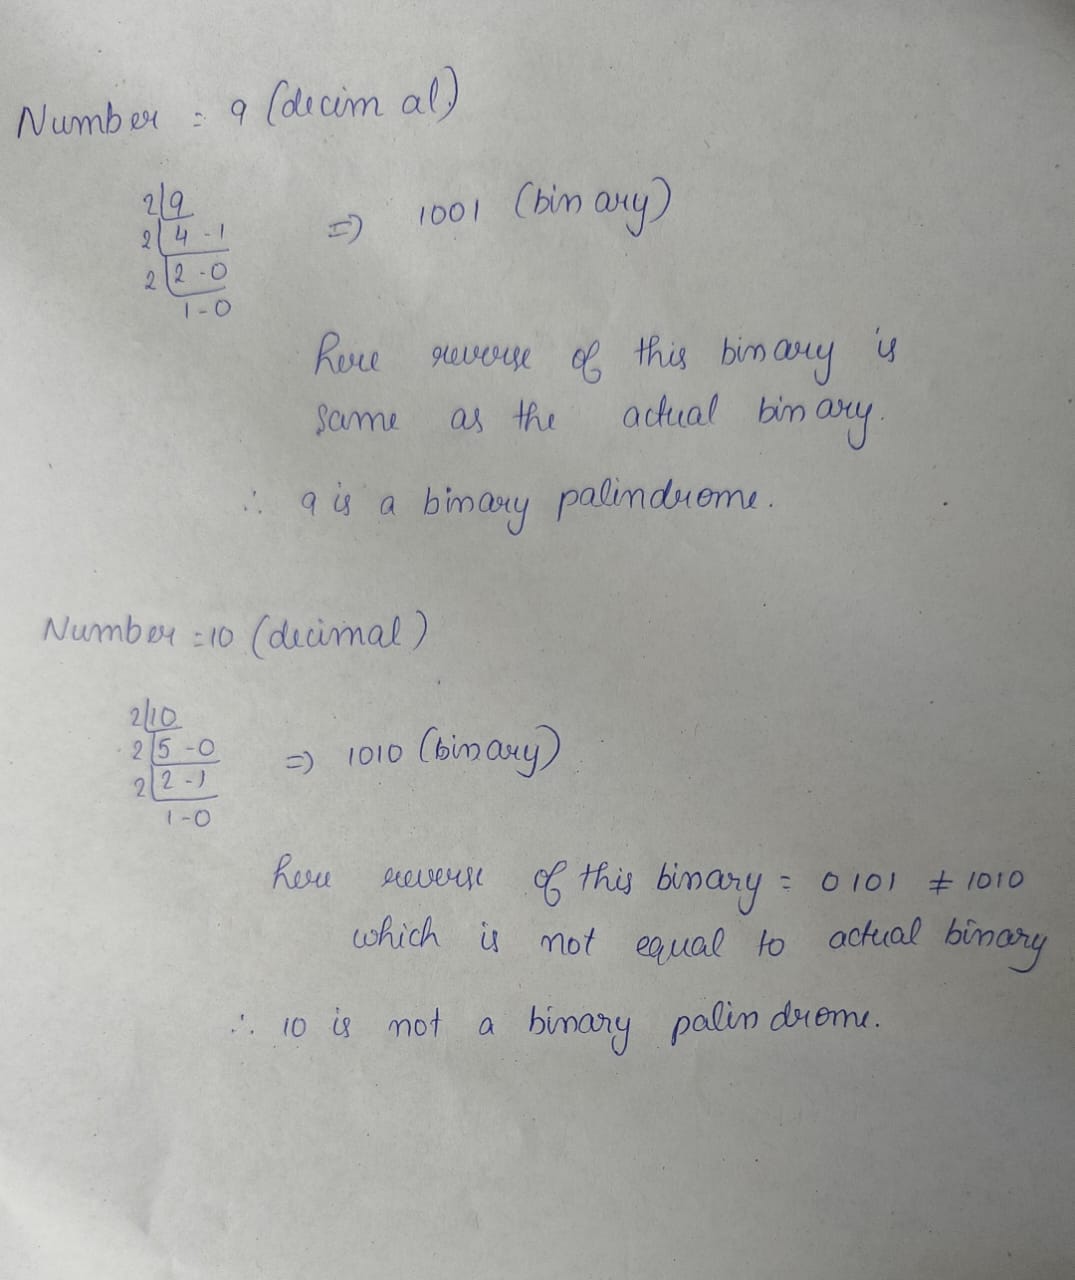 Number = 9 (decimal)
2|9
2|4 - 1
2|2 - 0
1 - 0
=> 1001 (binary)
here reverse of this binary is
same as the actual binary.
∴ 9 is a binary palindrome.
Number = 10 (decimal)
2|10
2|5 - 0
2|2 - 1
1 - 0
=> 1010 (binary)
here reverse of this binary = 0101 ≠ 1010
which is not equal to actual binary
∴ 10 is not a binary palindrome.